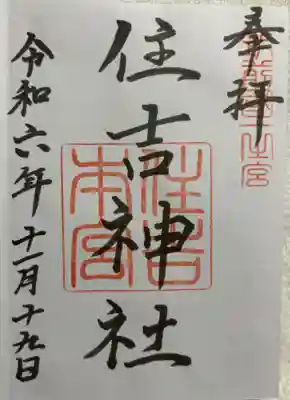 奉拝
住吉神社
住吉本宮
令和六年十一月十九日